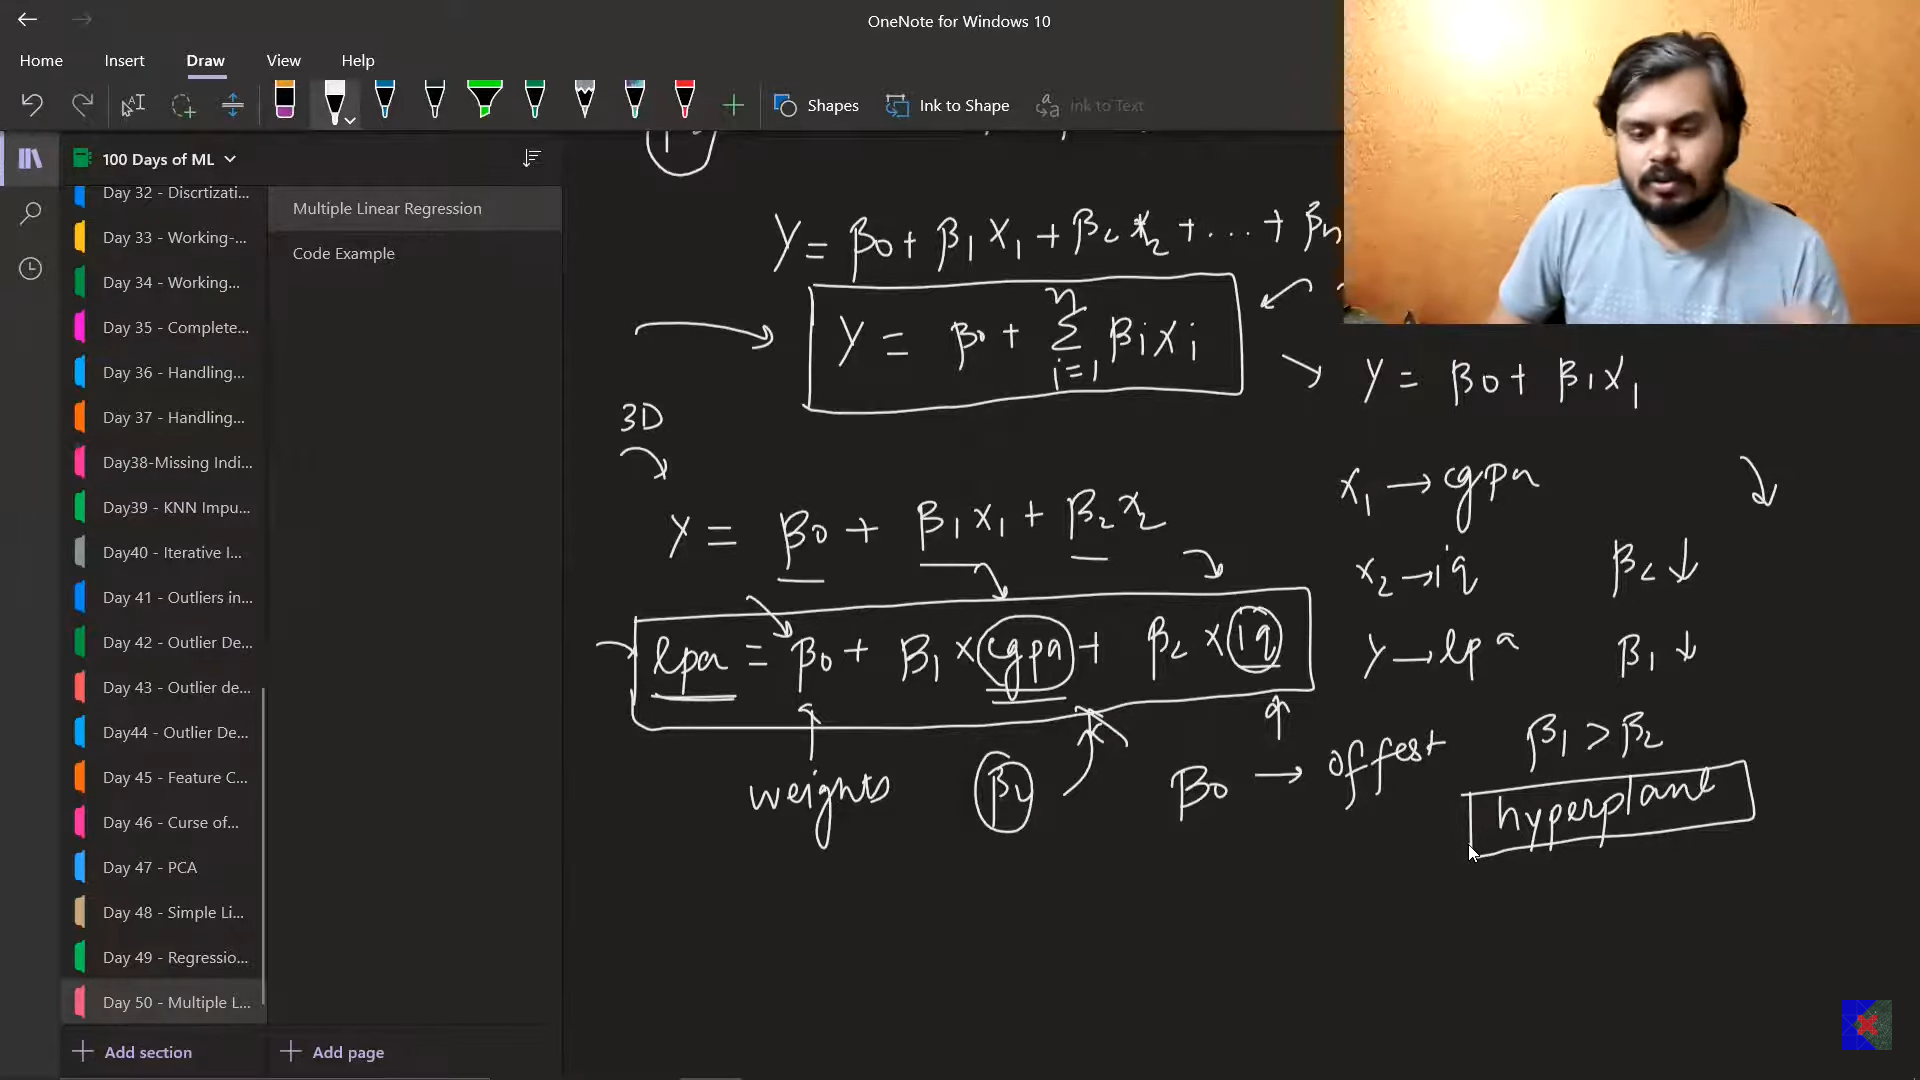 OneNote for Windows 10
Home Insert Draw View Help
Shapes Ink to Shape Ink to Text
100 Days of ML
Day 32 - Discrtizati...
Day 33 - Working-...
Day 34 - Working...
Day 35 - Complete...
Day 36 - Handling...
Day 37 - Handling...
Day38-Missing Indi...
Day39 - KNN Impu...
Day40 - Iterative I...
Day 41 - Outliers in...
Day 42 - Outlier De...
Day 43 - Outlier de...
Day44 - Outlier De...
Day 45 - Feature C...
Day 46 - Curse of...
Day 47 - PCA
Day 48 - Simple Li...
Day 49 - Regressio...
Day 50 - Multiple L...
Add section
Multiple Linear Regression
Code Example
Add page
Y = β0 + β1 X1 + β2 X2 + ... + βn
Y = β0 + Σ i=1 n βi Xi
Y = β0 + β1 X1
3D
Y = β0 + β1 X1 + β2 X2
lpa = β0 + β1 × cgpa + β2 × iq
X1 → cgpa
X2 → iq β2 ↓
Y → lpa β1 ↓
β1 > β2
weights β0 → offest
hyperplane